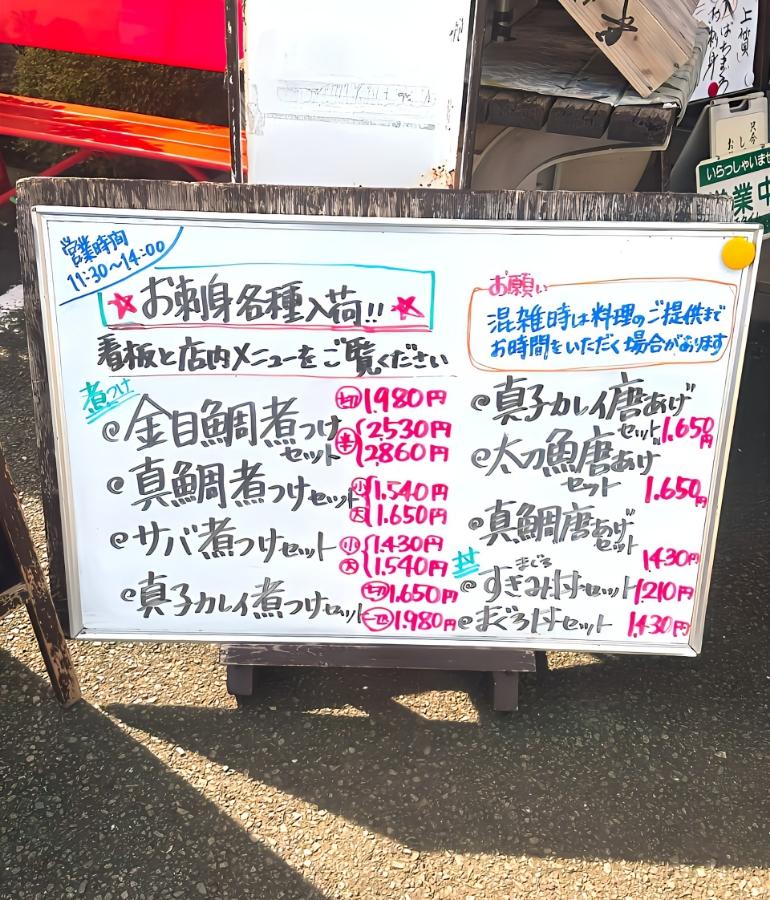 営業時間
11:30～14:00
★お刺身各種入荷!!★
看板と店内メニューをご覧ください
お願い
混雑時は料理のご提供まで
お時間をいただく場合があります
煮つけ
金目鯛煮つけセット
切 1.980円
半 2530円
2860円
真鯛煮つけセット
小 1.540円
大 1.650円
サバ煮つけセット
小 1.430円
大 1.540円
真子カレイ煮つけセット
切 1.650円
一匹 1.980円
真子カレイ唐あげ
セット 1.650円
太刀魚唐あげ
セット 1.650円
真鯛唐あげ
セット 1430円
丼
まぐろ
すきみ丼セット 1.210円
まぐろ丼セット 1.430円
いらっしゃいませ
営業中